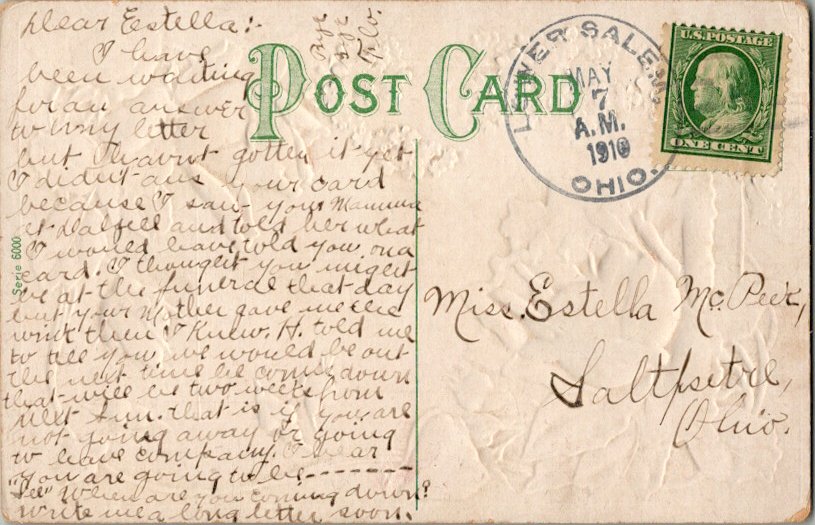 Dear Estella:-
I have
been waiting
for an answer
to my letter
but I havnt gotten it yet
I didn't ans your card
because I saw your Mamma
at Dalzell and told her what
I would have told you on a
card. I thought you might
be at the funeral that day
but your Mother gave me the
wink then I Knew. H. told me
to tell you we would be out
the next time he comes down
that will be two weeks from
next Sun. that is if you are
not going away or going
to have company. I hear
"you are going to be--------
"Lee" When are you coming down?
write me a long letter soon.
bye
bye
Flo.
POST CARD
LOWER SALEM
MAY
7
A.M.
1910
OHIO.
U.S. POSTAGE
ONE CENT
Miss. Estella Mc. Peek,
Saltpetre,
Ohio.
Serie 6000